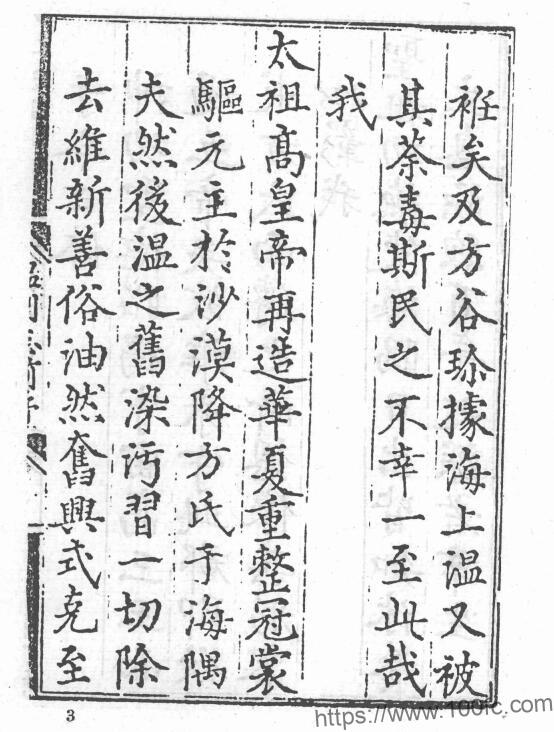 袵矣及方谷珎據海上温又被
其荼毒斯民之不幸一至此哉
我
太祖髙皇帝再造華夏重整冠裳
驅元主於沙漠降方氏于海隅
夫然後温之舊染汚習一切除
去維新善俗油然奮興式克至
3
https://www.100fc.com